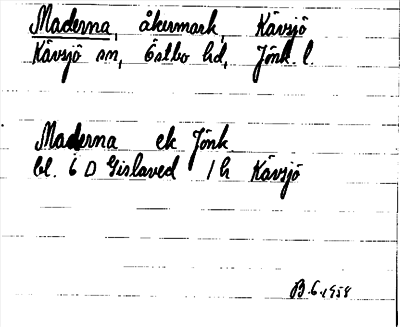 Maderna, åkermark, Kävsjö
Kävsjö sn, Östbo hd, Jönk. l.
Maderna ek Jönk
bl. 6 D Gislaved 1 h Kävsjö
B. 6. 1958